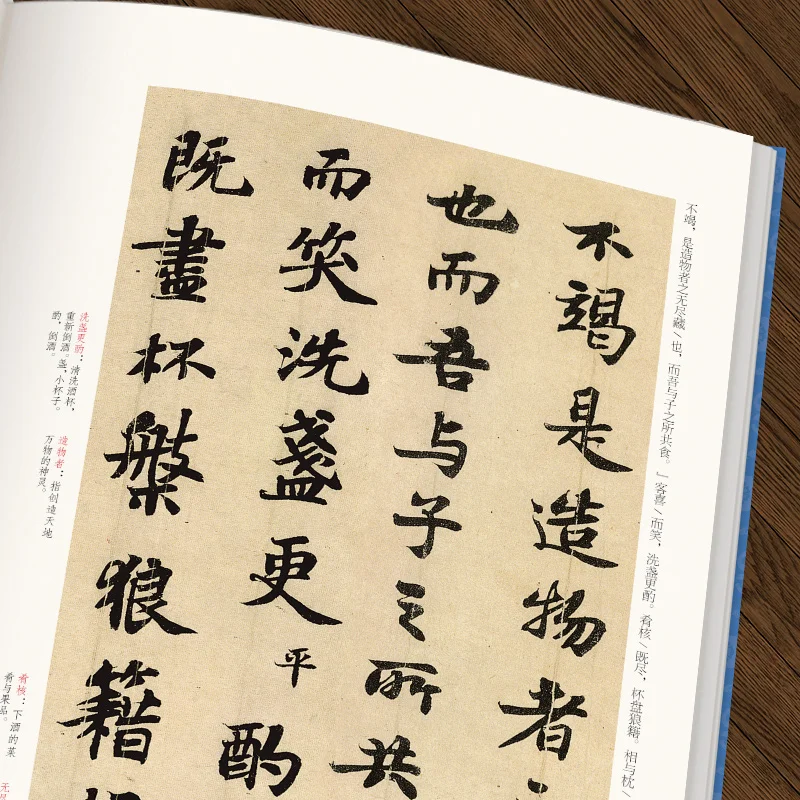 不竭，是造物者之无尽藏\也，而吾与子之所共食。”客喜\而笑，洗盏更酌。肴核\既尽，杯盘狼籍。相与枕\
不竭是造物者
也而吾与子之所共
而笑洗盏更平酌
既盡杯槃狼籍
洗盏更酌：清洗酒杯，
重新倒酒。盏，小杯子。
酌，倒酒。
造物者：指创造天地
万物的神灵。
肴核：下酒的菜
肴与果品。